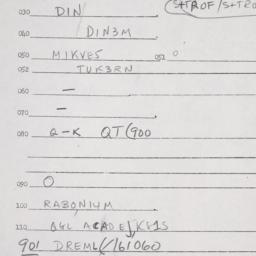 030 DIN (S+TROF/S+TRO
040 DIN3M
050 MIKVES 051 0
052 TUK3RN
060 —
070 —
080 Q-K QT(900
090 0
100 RABONIUM
110
901 DREML(/161060